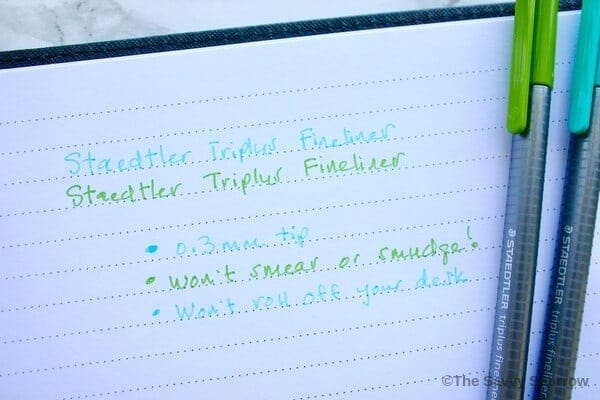 Staedtler Triplus Fineliner
Staedtler Triplus Fineliner
• 0.3mm tip
• won't smear or smudge!
• Won't roll off your desk
STAEDTLER triplus fineliner
STAEDTLER triplus fineliner
©The Savvy Sparrow